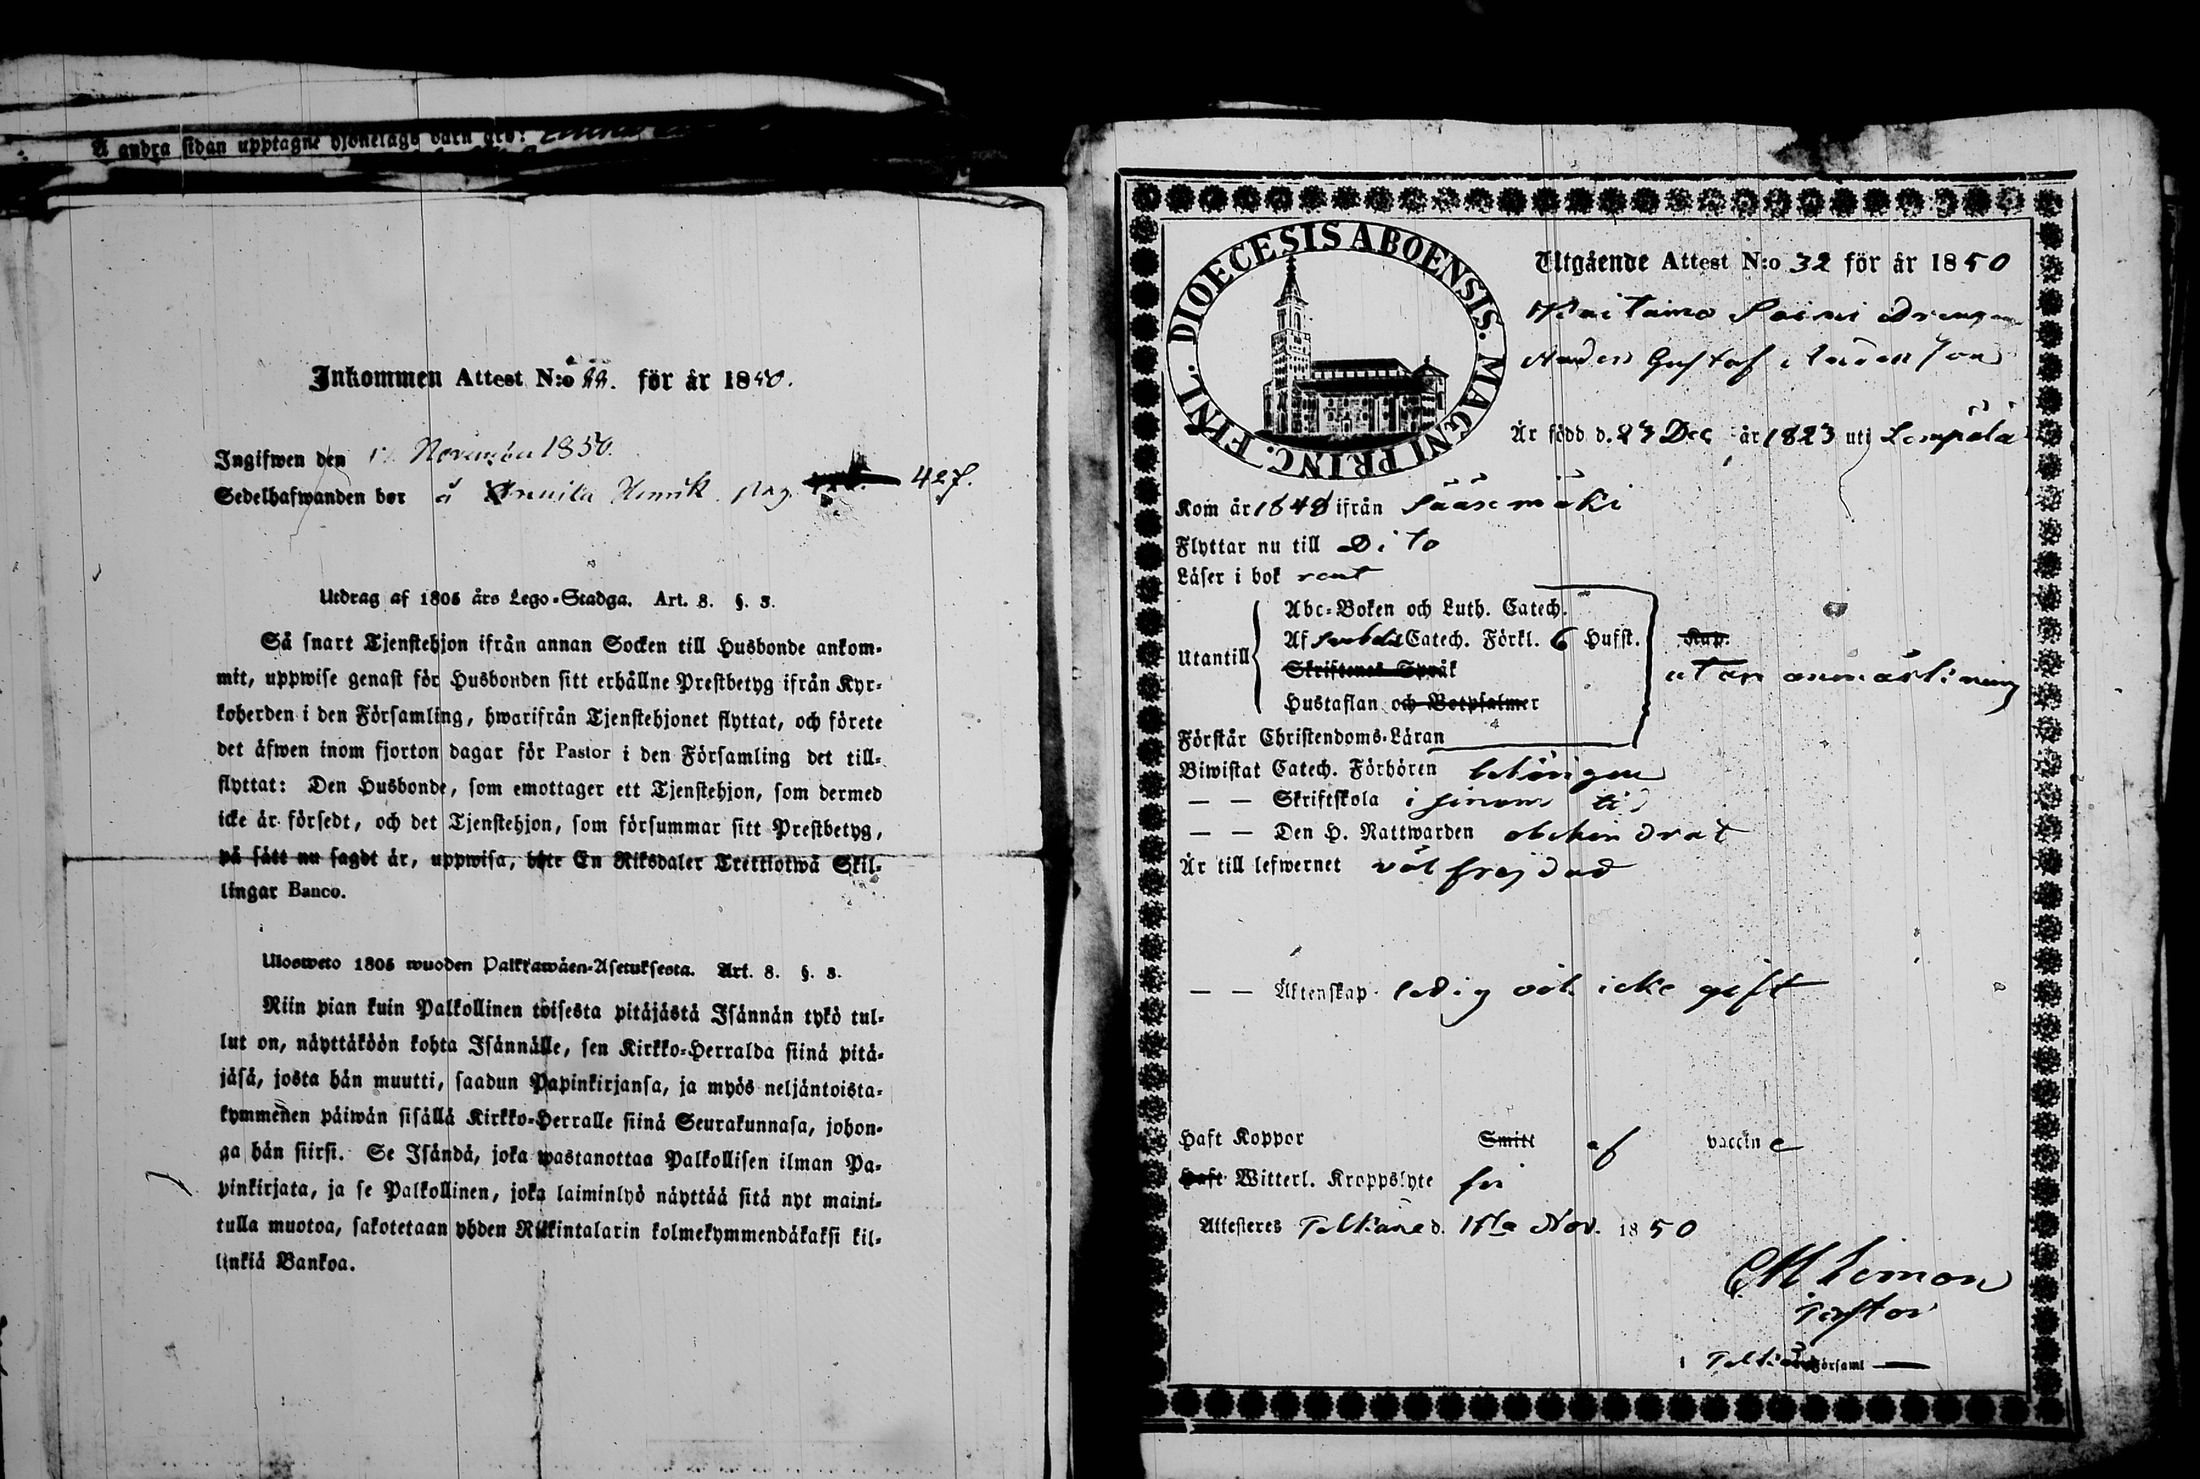 Å andra sidan upptagne hjonelags barn äro:
Inkommen Attest N:o 22. för år 1850.
Ingifwen den 17 November 1850.
Sedelhafwanden bor å Henrik pag. 427.
Utdrag af 1805 års Lego-Stadga. Art. 8. §. 3.
Så snart Tjenstehjon ifrån annan Socken till Husbonde ankom-
mit, uppwise genast för Husbonden sitt erhållne Prestbetyg ifrån Kyr-
koherden i den Församling, hwarifrån Tjenstehjonet flyttat, och förete
det äfwen inom fjorton dagar för Pastor i den Församling det till-
flyttat: Den Husbonde, som emottager ett Tjenstehjon, som dermed
icke är försedt, och det Tjenstehjon, som försummar sitt Prestbetyg,
på sätt nu sagdt är, uppwisa, böte En Riksdaler Trettiotwå Skil-
lingar Banco.
Ulosweto 1805 wuoden Palkkawäen-Asetuksesta. Art. 8. §. 3.
Niin pian kuin Palkollinen toisesta pitäjästä Isännän tykö tul-
lut on, näyttäköön kohta Isännälle, sen Kirkko-Herralda siinä pitä-
jäsä, josta hän muutti, saadun Papinkirjansa, ja myös neljäntoista-
kymmenen päiwän sisällä Kirkko-Herralle siinä Seurakunnasa, johon-
ga hän siirsi. Se Isändä, joka wastanottaa Palkollisen ilman Pa-
pinkirjata, ja se Palkollinen, joka laiminlyö näyttää sitä nyt maini-
tulla muotoa, sakotetaan yhden Riikintalarin kolmekymmendäkaksi kil-
linkiä Bankoa.
DIOECESIS ABOENSIS. MAGNI PRINC. FINL.
Utgående Attest N:o 32 för år 1850
Drengen
Anders Gustaf Andersson
Är född d. 23 Dec år 1823 uti Lempälä
Kom år 1848 ifrån Sääxmäki
Flyttar nu till Dito
Läser i bok rent
Utantill
Abc-Boken och Luth. Catech.
Af Svebelii Catech. Förkl. 6 Hufst. Kap.
Skriftenes Språk
Hustaflan och Botpsalmer
utan anmärkning
Förstår Christendoms-Läran
Biwistat Catech. Förhören behörigen
— — Skriftskola i sinom tid
— — Den H. Nattwarden obehindrat
Är till lefwernet välfrejdad
— — Äktenskap ledig och icke gift
Haft Koppor Smitt af vaccine
Haft Witterl. Kroppslyte fri
Attesteres Pelkäne d. 15de Nov. 1850
Pastor
i Pelkäne Församl